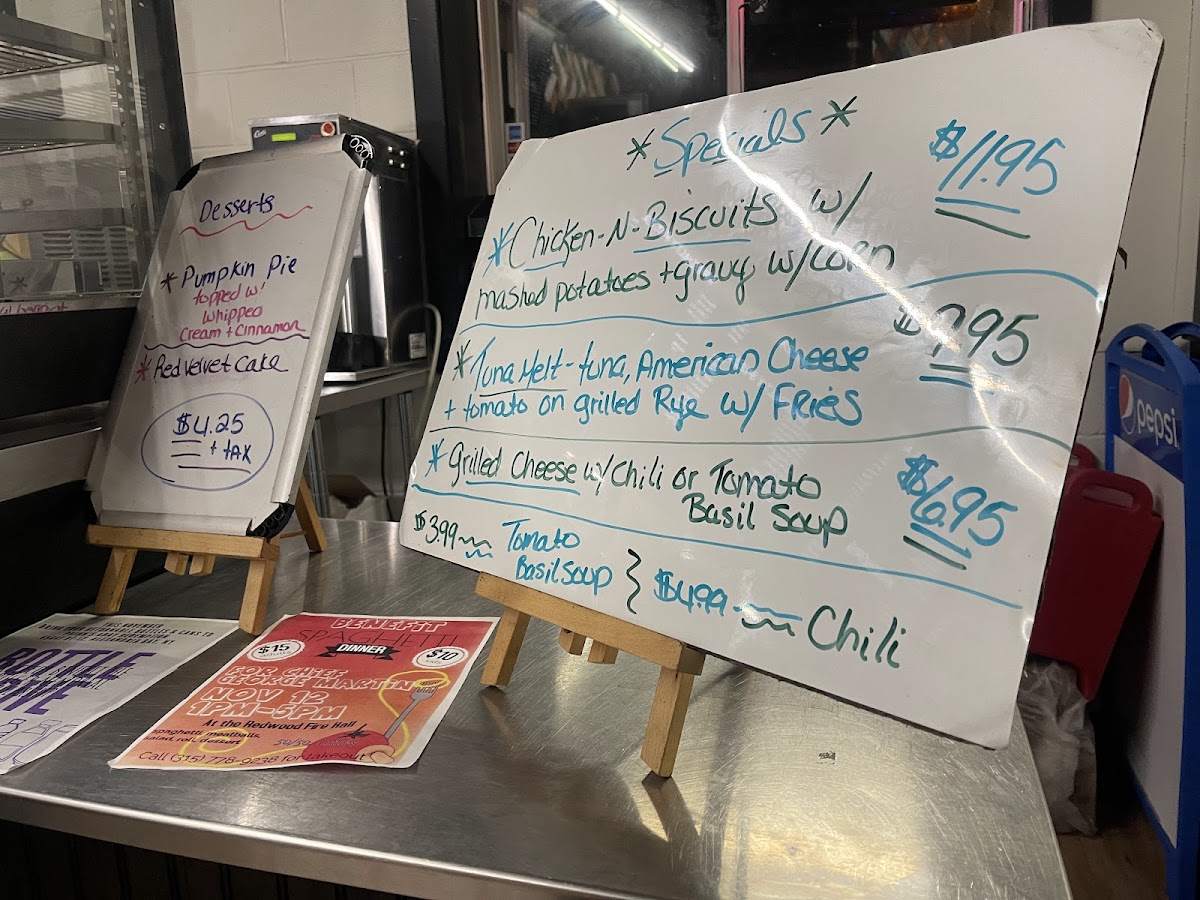 Desserts
* Pumpkin Pie
topped w/
whipped
Cream + Cinnamon
* Red velvet Cake
$4.25
+ tax
* Specials *
$11.95
* Chicken-N-Biscuits w/
mashed potatoes + gravy w/ corn
$9.95
* Tuna Melt - tuna, American Cheese
+ tomato on grilled Rye w/ Fries
* Grilled Cheese w/ Chili or Tomato
Basil Soup
$6.95
$3.99 Tomato
Basil Soup
$4.99 Chili
THIS NOVEMBER
BOTTLE
DRIVE
BENEFIT
SPAGHETTI
DINNER
$15
$10
FOR CHIEF
GEORGE MARTIN
NOV 12
1PM-5PM
At the Redwood Fire Hall
spaghetti, meatballs,
salad, roll, dessert
50/50
Call (315) 778-9238 for takeout
pepsi